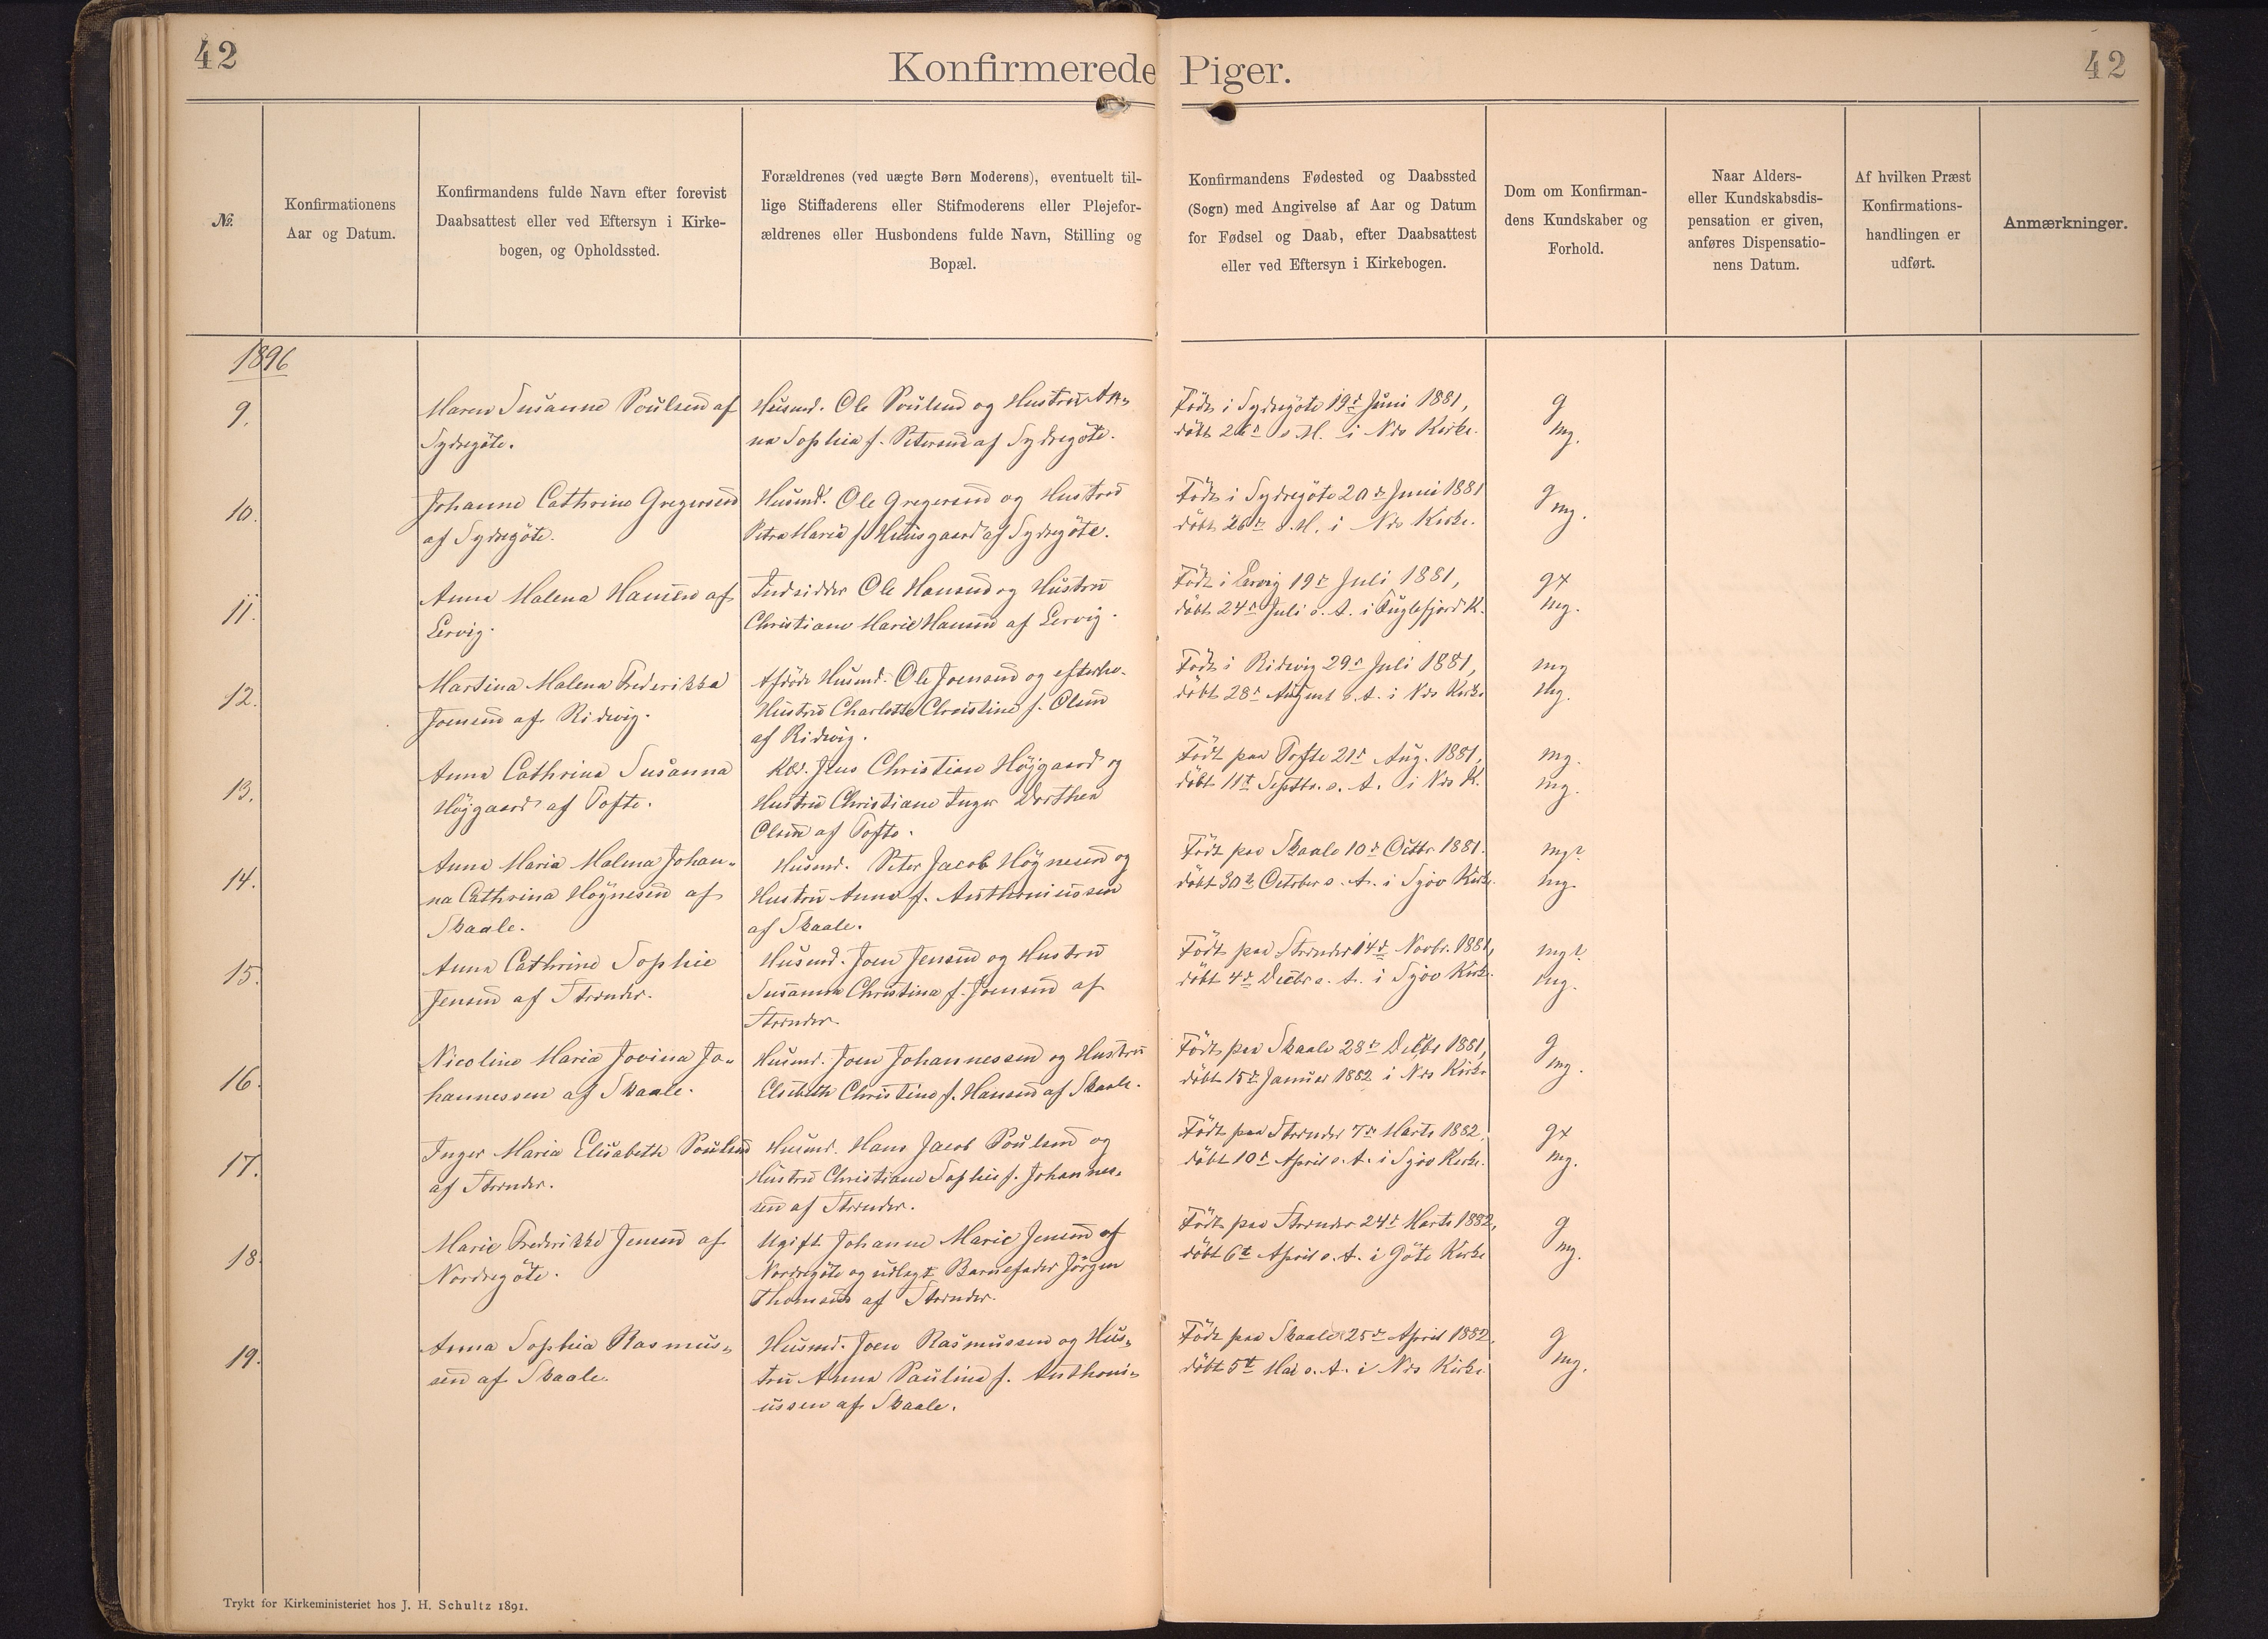 42
Konfirmerede Piger.
42
№.
Konfirmationens
Aar og Datum.
Konfirmandens fulde Navn efter forevist
Daabsattest eller ved Eftersyn i Kirke-
bogen, og Opholdssted.
Forældrenes (ved uægte Børn Moderens), eventuelt til-
lige Stiffaderens eller Stifmoderens eller Plejefor-
ældrenes eller Husbondens fulde Navn, Stilling og
Bopæl.
Konfirmandens Fødested og Daabssted
(Sogn) med Angivelse af Aar og Datum
for Fødsel og Daab, efter Daabsattest
eller ved Eftersyn i Kirkebogen.
Dom om Konfirman-
dens Kundskaber og
Forhold.
Naar Alders-
eller Kundskabsdis-
pensation er given,
anføres Dispensatio-
nens Datum.
Af hvilken Præst
Konfirmations-
handlingen er
udført.
Anmærkninger.
1896
9.
Maren Susanne Poulsen af
Sydregöte.
Husmd. Ole Poulsen og Hustru An-
na Sophia f. Petersen af Sydregöte.
Födt i Sydregöte 19d Juni 1881,
döbt 26d s. M. i Nes Kirke.
g
mg.
10.
Johanne Cathrine Gregersen
af Sydregöte.
Husmd. Ole Gregersen og Hustru
Petra Maria f. Huusgaard af Sydregöte.
Födt i Sydregöte 20d Juni 1881
döbt 26d s. M. i Nes Kirke.
g
mg.
11.
Anna Malena Hansen af
Lervig.
Indsidder Ole Hansen og Hustru
Christiane Marie Hansen af Lervig.
Födt i Lervig 19d Juli 1881,
döbt 24d Juli s. A. i Fuglefjord K.
g+
mg.
12.
Martina Malena Frederikka
Joensen af Ridevig.
Afdöde Husmd. Ole Joensen og efterlev.
Hustru Charlotte Christine f. Olsen
af Ridevig.
Födt i Ridevig 29d Juli 1881,
döbt 28d August s. A. i Nes Kirke
mg
mg.
13.
Anna Cathrina Susanna
Höjgaard af Tofte.
Kbd. Jens Christian Höjgaard og
Hustru Christiane Inger Dorthea
Olsen af Tofte.
Födt paa Tofte 21d Aug. 1881,
döbt 11t Septbr. s. A. i Nes K.
mg.
mg.
14.
Anna Maria Malena Johan-
na Cathrina Högnesen af
Skaale.
Husmd. Peter Jacob Högnesen og
Hustru Anna f. Anthoniussen
af Skaale.
Födt paa Skaale 10d Octbr 1881.
döbt 30d October s. A. i Sjov Kirke.
mg?
mg.
15.
Anna Cathrine Sophie
Jensen af Strender.
Husmd. Joen Jensen og Hustru
Susanna Christina f. Joensen af
Strender.
Födt paa Strender 14d Novbr. 1881,
döbt 4d Decbr s. A. i Sjov Kirke.
mg?
mg.
16.
Nicoline Maria Jovina Jo-
hannessen af Skaale.
Husmd. Joen Johannessen og Hustru
Elsebeth Christine f. Hansen af Skaale.
Födt paa Skaale 28d Decbr 1881,
döbt 15d Januar 1882 i Nes Kirke
g
mg.
17.
Inger Maria Elisabeth Poulsen
af Strender.
Husmd. Hans Jacob Poulsen og
Hustru Christiane Sophie f. Johannes-
sen af Strender.
Födt paa Strender 7d Marts 1882.
döbt 10d April s. A. i Sjov Kirke.
g+
mg.
18.
Marie Frederikke Jensen af
Nordregöte.
Ugift Johanne Marie Jensen af
Nordregöte og udlagt Barnefader Jörgen
Thomsen af Strender.
Födt paa Strender 24d Marts 1882,
döbt 6t April s. A. i Göte Kirke
g
mg.
19.
Anna Sophia Rasmus-
sen af Skaale.
Husmd. Joen Rasmussen og Hus-
tru Anna Paulina f. Anthoni-
ussen af Skaale.
Födt paa Skaale 25d April 1882.
döbt 5t Mai s. A. i Nes Kirke
g
mg.
Trykt for Kirkeministeriet hos J. H. Schultz 1891.